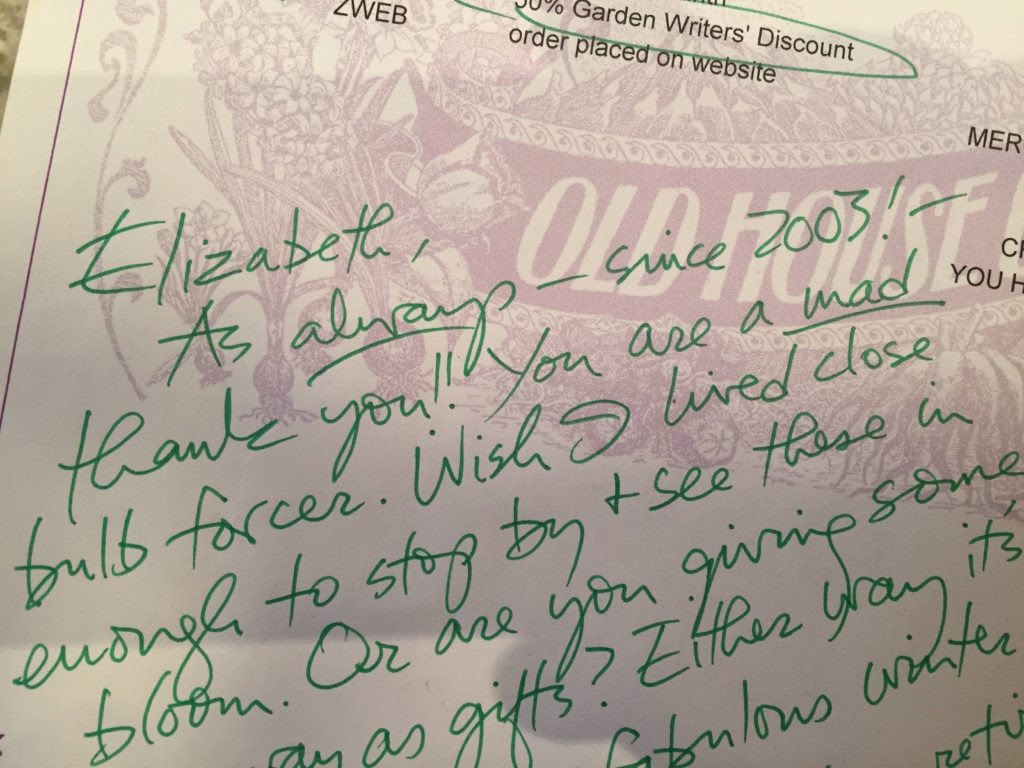 ZWEB
50% Garden Writers' Discount
order placed on website
MER
OLD HOUSE
YOU H
Elizabeth,
As always – since 2003! –
thank you!! You are a mad
bulb forcer. Wish I lived close
enough to stop by + see these in
bloom. Or are you giving some
as gifts? Either way, it's
fabulous winter